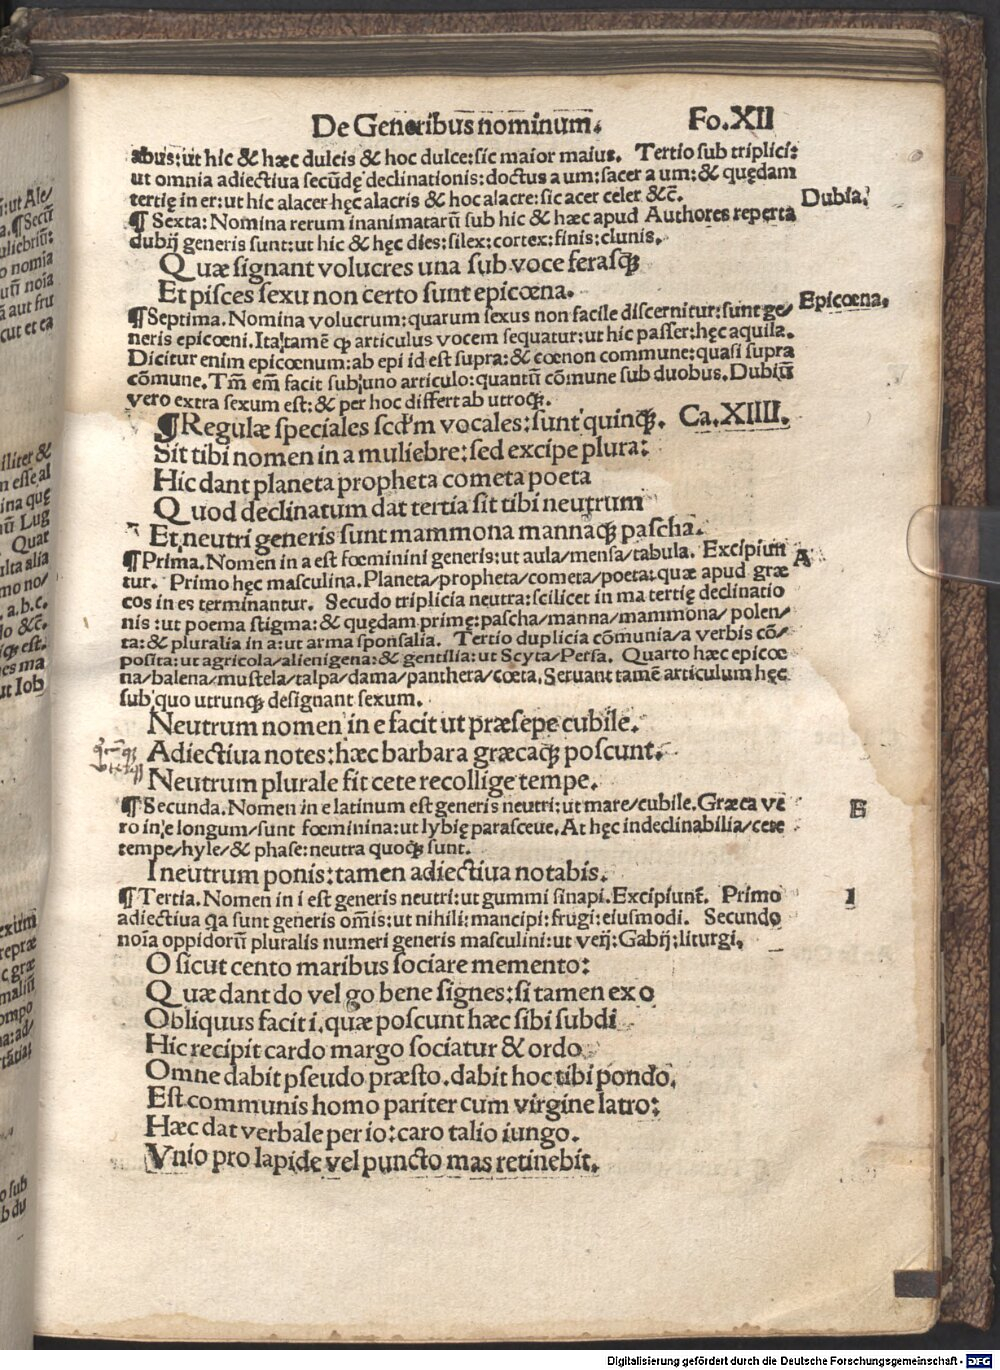 De Generibus nominum. Fo.XII
abus:ut hic & hæc dulcis & hoc dulce:sic maior maius. Tertio sub triplici:
ut omnia adiectiua secūdę declinationis:doctus a um:sacer a um:& quędam
tertię in er:ut hic alacer hęc alacris & hoc alacre:sic acer celer &c̄. Dubia.
¶ Sexta: Nomina rerum inanimatarū sub hic & hæc apud Authores reperta
dubij generis sunt:ut hic & hęc dies:silex:cortex:finis:clunis.
Quæ signant volucres una sub voce ferasqꝫ
Et pisces sexu non certo sunt epicœna.
¶ Septima. Nomina volucrum:quarum sexus non facile discernitur:sunt ge/ Epicœna.
neris epicœni. Ita tamē ꝙ articulus vocem sequatur:ut hic passer:hęc aquila.
Dicitur enim epicœnum:ab epi id est supra:& cœnon commune:quasi supra
cōmune. Tm̄ em̄ facit sub uno articulo:quantū cōmune sub duobus. Dubiū
vero extra sexum est:& per hoc differt ab utroqꝫ.
¶ Regulæ speciales scd'm vocales:sunt quinqꝫ. Ca.XIIII.
Sit tibi nomen in a muliebre:sed excipe plura:
Hic dant planeta propheta cometa poeta
Quod declinatum dat tertia sit tibi neutrum
Et neutri generis sunt mammona mannaqꝫ pascha.
¶ Prima. Nomen in a est fœminini generis:ut aula/mensa/tabula. Excipiun A
tur. Primo hęc masculina. Planeta/propheta/cometa/poeta:quæ apud græ
cos in es terminantur. Secudo triplicia neutra:scilicet in ma tertię declinatio
nis :ut poema stigma:& quędam primę:pascha/manna/mammona/polen/
ta:& pluralia in a:ut arma sponsalia. Tertio duplicia cōmunia/a verbis cō/
posita:ut agricola/alienigena:& gentilia:ut Scyta/Persa. Quarto hæc epicœ
na/balena/mustela/talpa/dama/panthera/cœta. Seruant tamē articulum hęc
sub quo utrunqꝫ designant sexum.
Neutrum nomen in e facit ut præsepe cubile.
Adiectiua notes:hæc barbara græcaqꝫ poscunt.
Neutrum plurale fit cete recollige tempe.
¶ Secunda. Nomen in e latinum est generis neutri:ut mare/cubile. Græca ve E
ro in e longum/sunt fœminina:ut lybię parasceue. At hęc indeclinabilia/cete
tempe/hyle/& phase:neutra quoqꝫ sunt.
I neutrum ponis:tamen adiectiua notabis.
¶ Tertia. Nomen in i est generis neutri:ut gummi sinapi. Excipiunt̄. Primo I
adiectiua qa sunt generis om̄is:ut nihili:mancipi:frugi:eiusmodi. Secundo
noīa oppidorū pluralis numeri generis masculini:ut verij:Gabij:liturgi.
O sicut cento maribus sociare memento:
Quæ dant do vel go bene signes:si tamen ex o
Obliquus facit i.quæ poscunt hæc sibi subdi
Hic recipit cardo margo sociatur & ordo
Omne dabit pseudo præsto.dabit hoc tibi pondo.
Est communis homo pariter cum virgine latro:
Hæc dat verbale per io:caro talio iungo.
Vnio pro lapide vel puncto mas retinebit.
Digitalisierung gefördert durch die Deutsche Forschungsgemeinschaft - DFG